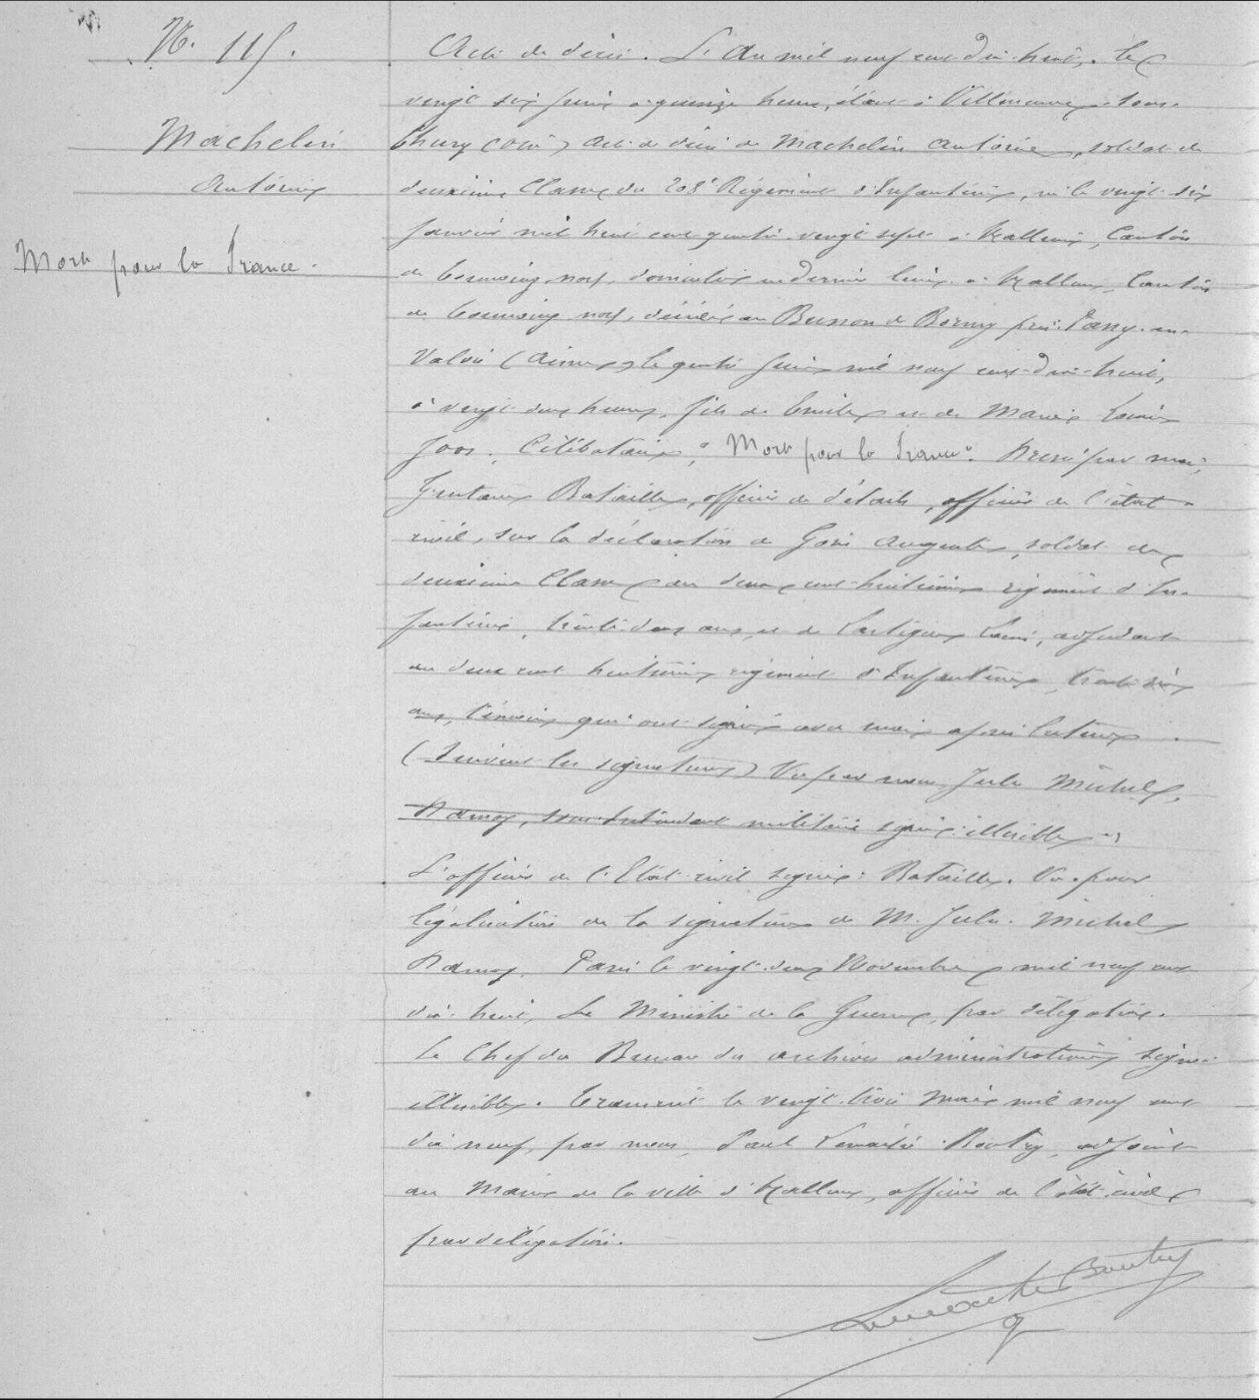 N. 115.
Machelin
Antoine
Mort pour la France.
Acte de décès. L'An mil neuf cent dix-huit, le
vingt six juin à quinze heures, étant à Villeneuve-sous-
Thury (Oise) Acte de décès de Machelin Antoine, soldat de
deuxième Classe du 208e Régiment d'Infanterie, né le vingt-six
Janvier mil huit cent quatre-vingt sept à Halluin, Canton
de Tourcoing nord, domicilié en dernier lieu à Halluin, Canton
de Tourcoing nord, décédé au Buisson de Borny près Fary-en-
Valois (Aisne) le quatre Juin mil neuf cent-dix-huit,
à vingt-deux heures, fils de Emile et de Marie Louise
Joos. Célibataire, "Mort pour la France". Dressé par moi,
Gustave Bataille, officier de détails, officier de l'état
civil, sur la déclaration de Auguste, soldat de
deuxième Classe au deux cent-huitième régiment d'In-
fanterie, trente-deux ans, et de Lartigue Louis, adjudant
au deux cent huitième régiment d'Infanterie, trente-six
ans, témoins qui ont signé avec moi après lecture.
(Suivent les signatures) Vu par nous Jules Michel,
Ramos, sous-Intendant militaire signé: illisible
L'officier de l'Etat-civil signé: Bataille. Vu pour
légalisation de la signature de M. Jules Michel
Ramos. Paris le vingt-deux Novembre mil neuf cent
dix-huit, Le Ministre de la Guerre, par délégation.
Le Chef du Bureau des archives administratives signé
illisible. Transcrit le vingt-trois Mars mil neuf cent
dix neuf, par nous, Paul Lemaitre-Boutry, adjoint
au Maire de la ville d'Halluin, officier de l'état-civil
par délégation.
Lemaitre Boutry